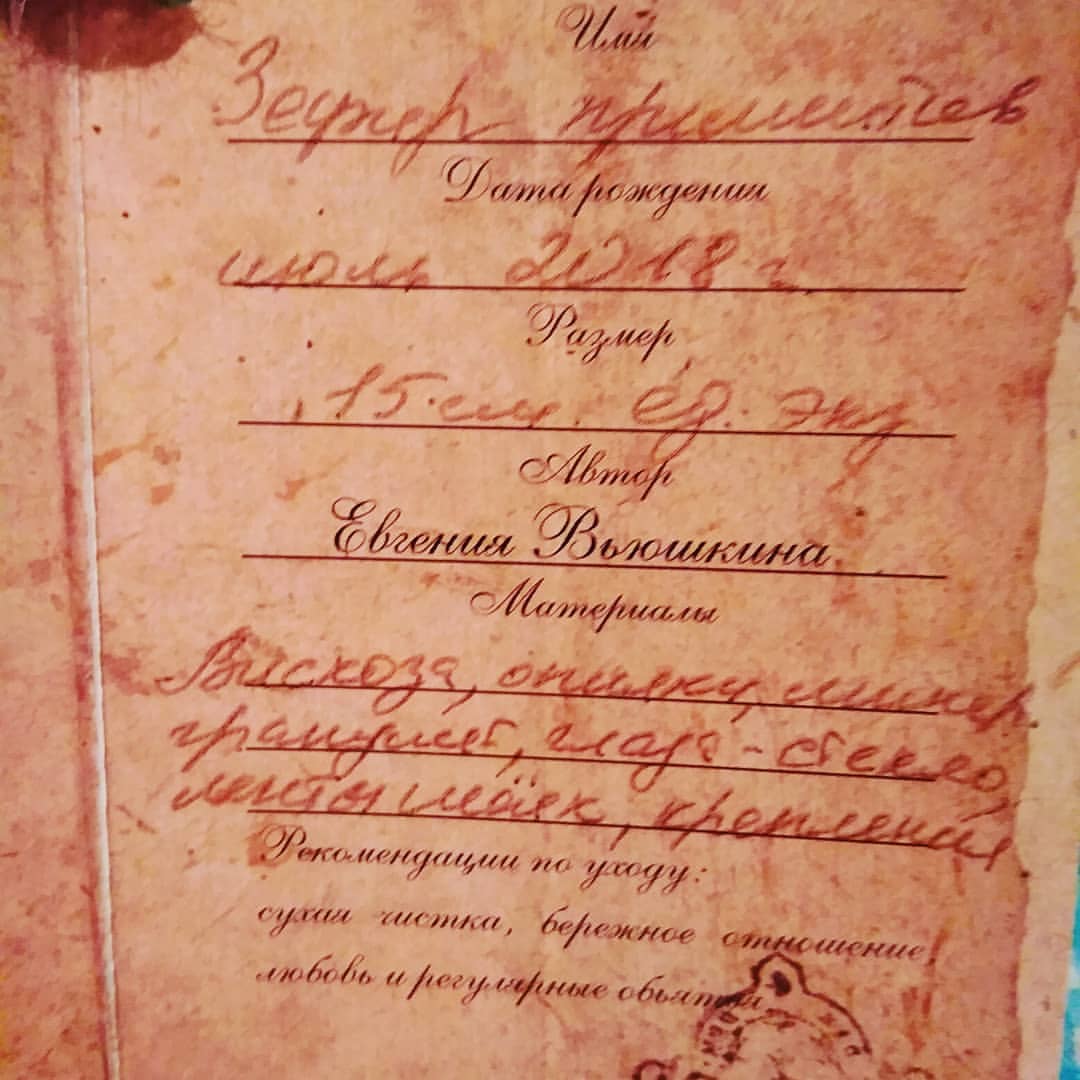 Имя
Зефир
Дата рождения
июль 2018 г.
Размер
15 см. ед. экз
Автор
Евгения Вьюшкина
Материалы
Вискоза, опилки, минер.
гранулят, глаз-стекло,
крепления
Рекомендации по уходу:
сухая чистка, бережное отношение,
любовь и регулярные объятия.